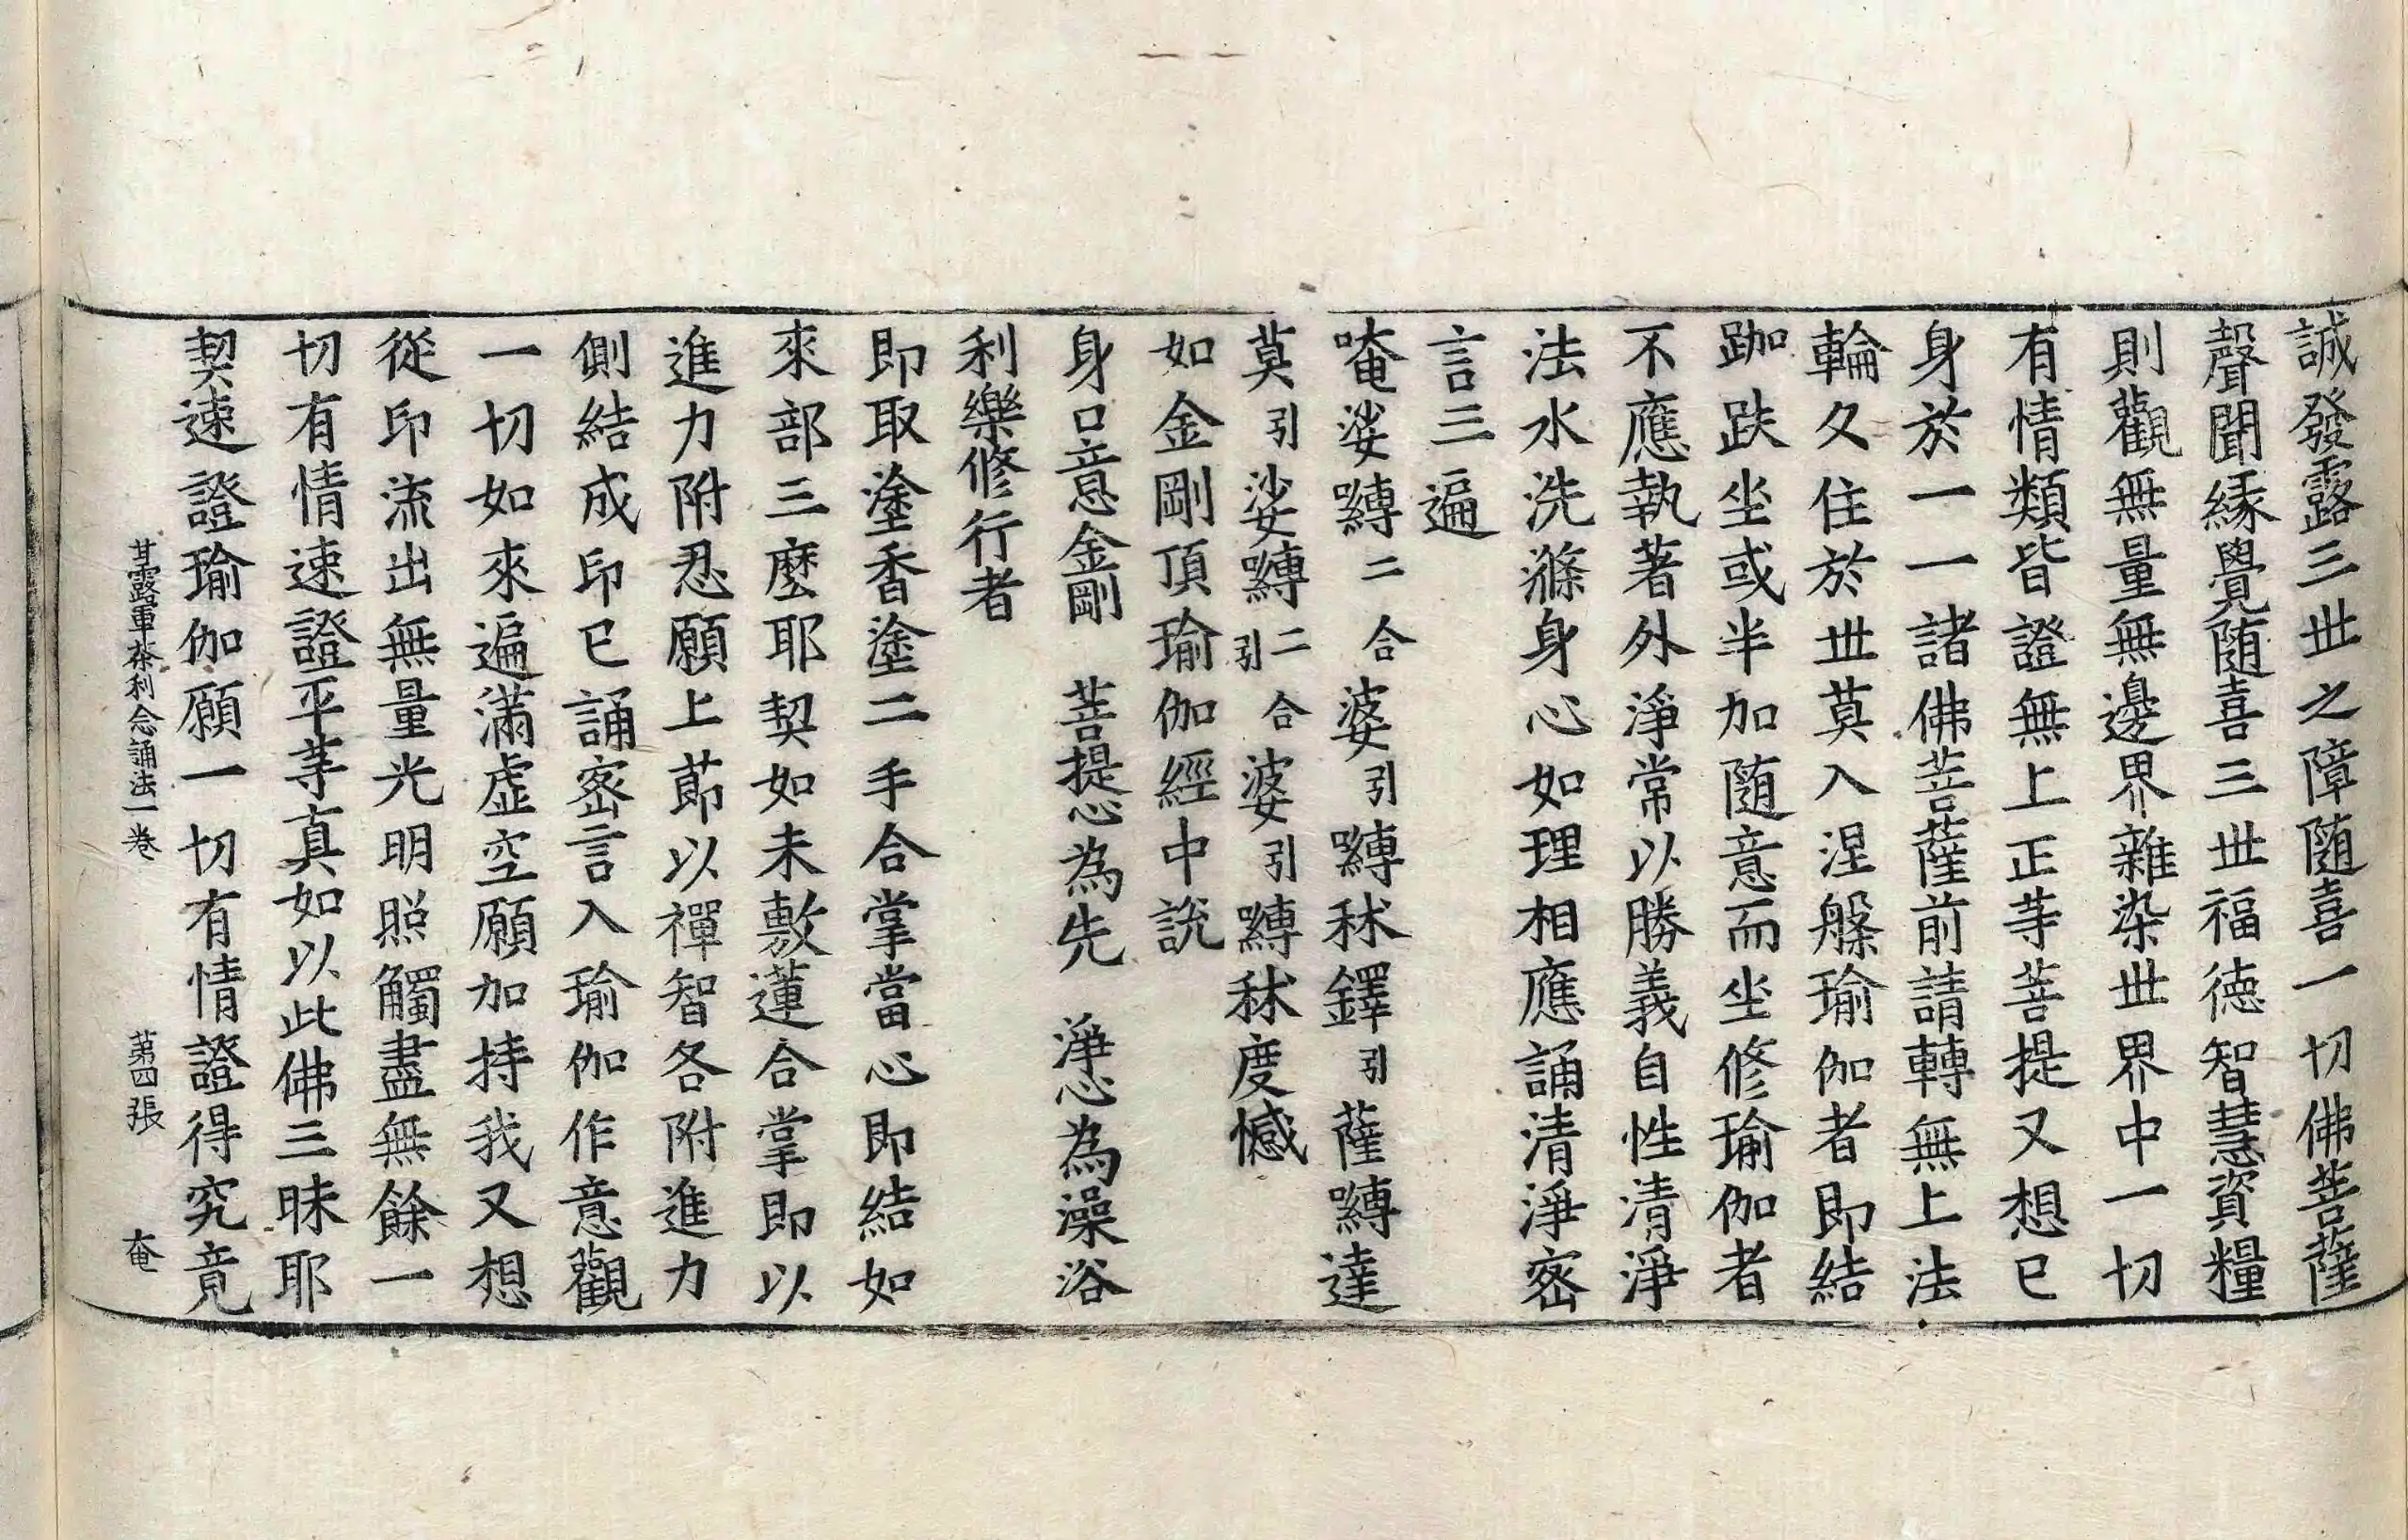 誠發露三世之障随喜一切佛菩薩
聲聞緣覺随喜三世福德智慧資糧
則觀無量無邊界雜染世界中一切
有情類皆證無上正等菩提又想已
身於一一諸佛菩薩前請轉無上法
輪久住於世莫入涅槃瑜伽者即結
跏趺坐或半加随意而坐修瑜伽者
不應執著外淨常以勝義自性清淨
法水洗滌身心如理相應誦清淨密
言三遍
唵娑嚩二合婆引嚩秫鐸引薩嚩達
莫引娑嚩二合引婆引嚩秫度憾
如金剛頂瑜伽經中說
身口意金剛　菩提心為先　淨心為澡浴
利樂修行者
即取塗香塗二手合掌當心即結如
來部三麼耶契如未敷蓮合掌即以
進力附忍願上莭以禪智各附進力
側結成印已誦密言入瑜伽作意觀
一切如來遍滿虛空願加持我又想
從印流出無量光明照觸盡無餘一
切有情速證平等真如以此佛三昧耶
契速證瑜伽願一切有情證得究竟
甘露軍茶利念誦法一卷　第四張　奄